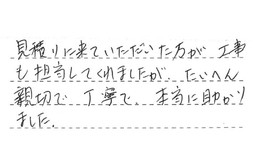 見積りに来ていただいた方が、工事
も担当してくれましたが、たいへん
親切で丁寧で、本当に助かり
ました。